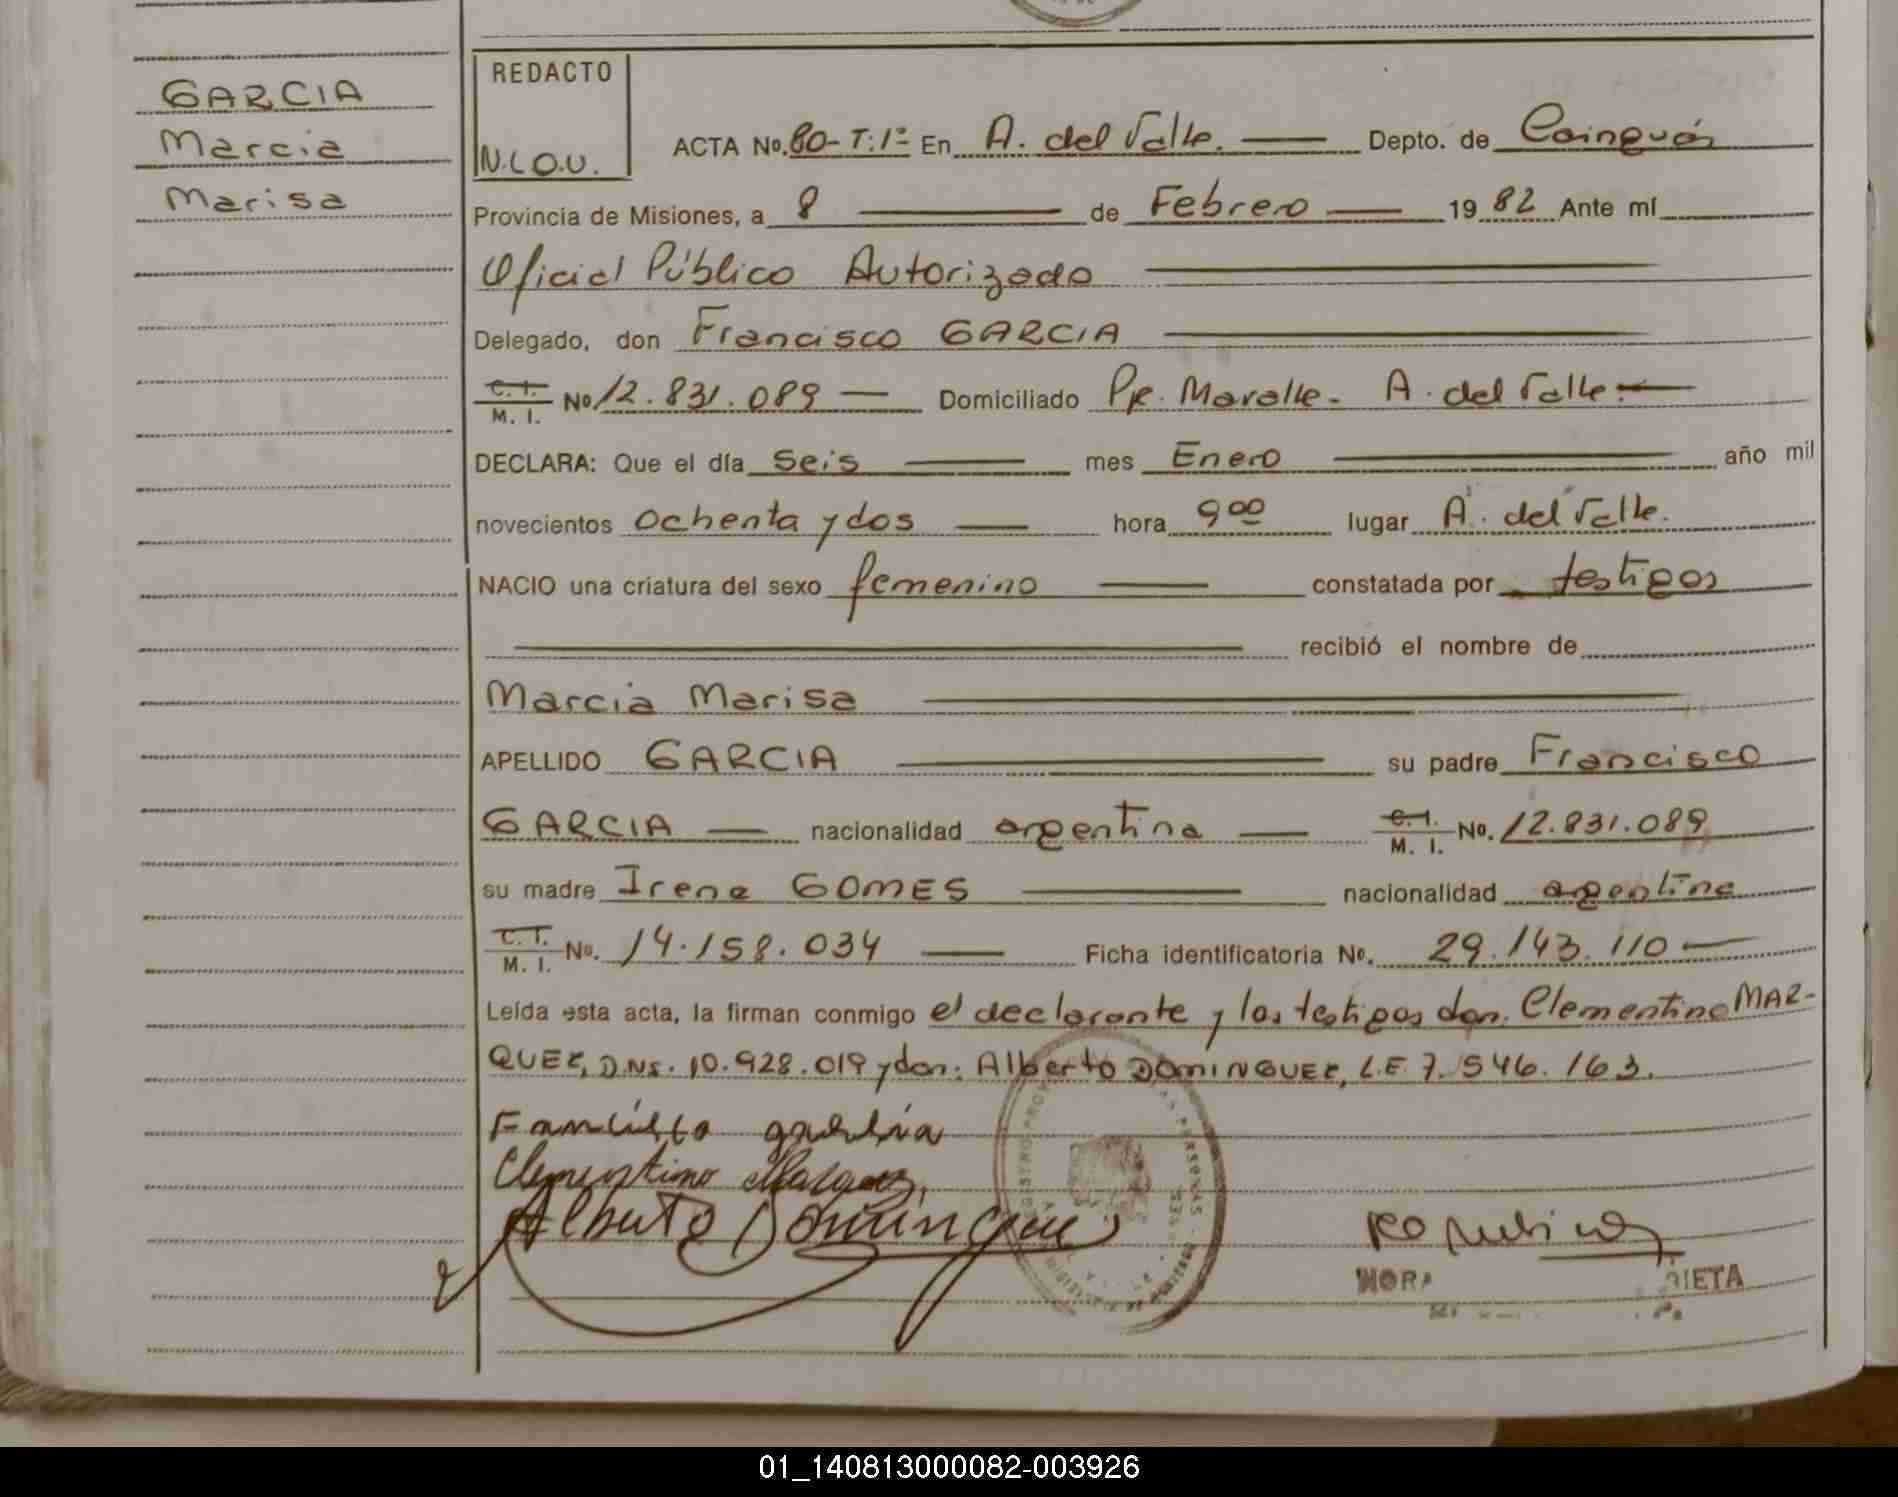 GARCIA
Marcia
Marisa
REDACTO
N.L.O.U.
ACTA No. 80-T:1º En A. del Valle. Depto. de Cainguás
Provincia de Misiones, a 8 de Febrero 19 82 Ante mí
Oficial Público Autorizado
Delegado, don Francisco GARCIA
C.I. M. I. No 12.831.089 Domiciliado Pje. Maralle. A. del Valle.
DECLARA: Que el día Seis mes Enero año mil
novecientos Ochenta y dos hora 9 00 lugar A. del Valle.
NACIO una criatura del sexo femenino constatada por testigos
recibió el nombre de
Marcia Marisa
APELLIDO GARCIA su padre Francisco
GARCIA nacionalidad argentina C.I. M. I. No. 12.831.089
su madre Irene GOMES nacionalidad argentina
C.I. M. I. No. 14.158.034 Ficha identificatoria No. 29.143.110
Leída esta acta, la firman conmigo el declarante y los testigos don. Clementino MAR-
QUEZ, D.N.I. 10.928.019 y don: Alberto DOMINGUEZ, L.E. 7.546.163.
Clementino Marquez
Alberto Dominguez
01_140813000082-003926